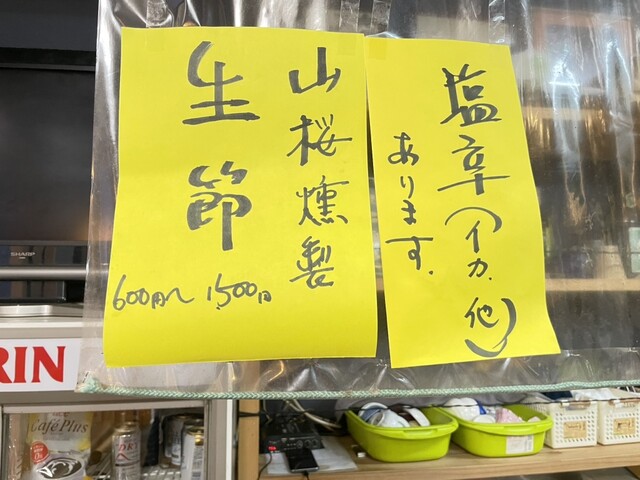 塩辛(イカ.他)
あります.
山桜燻製
生節
600円〜1,500円
SHARP
RIN
CaféPlus